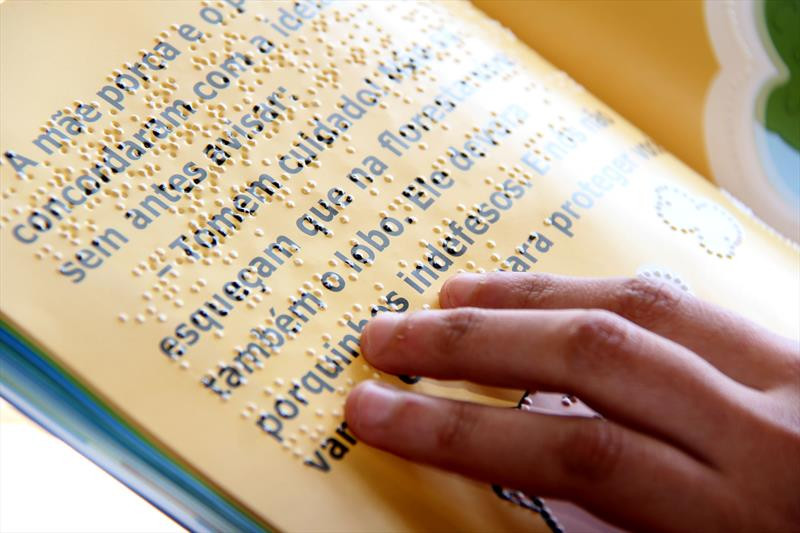 A mãe porca e o p
concordaram com a ideia
sem antes avisar:
– Tomem cuidado!
esqueçam que na floresta
também o lobo. Ele devora
porquinhos indefesos. E nós não
para proteger